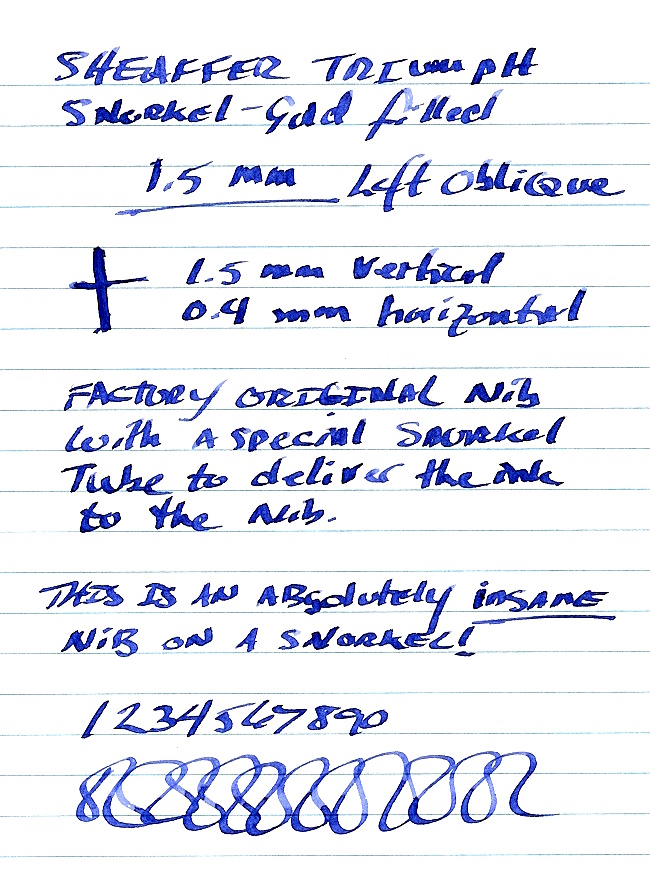 SHEAFFER TRIUMPH
SNORKEL - Gold filled
1.5 mm Left Oblique
1.5 mm Vertical
0.4 mm horizontal
FACTORY ORIGINAL Nib
With A special Snorkel
Tube to deliver the ink
to the Nib.
THIS IS AN ABsolutely insane
NIB ON A SNORKEL!
1234567890